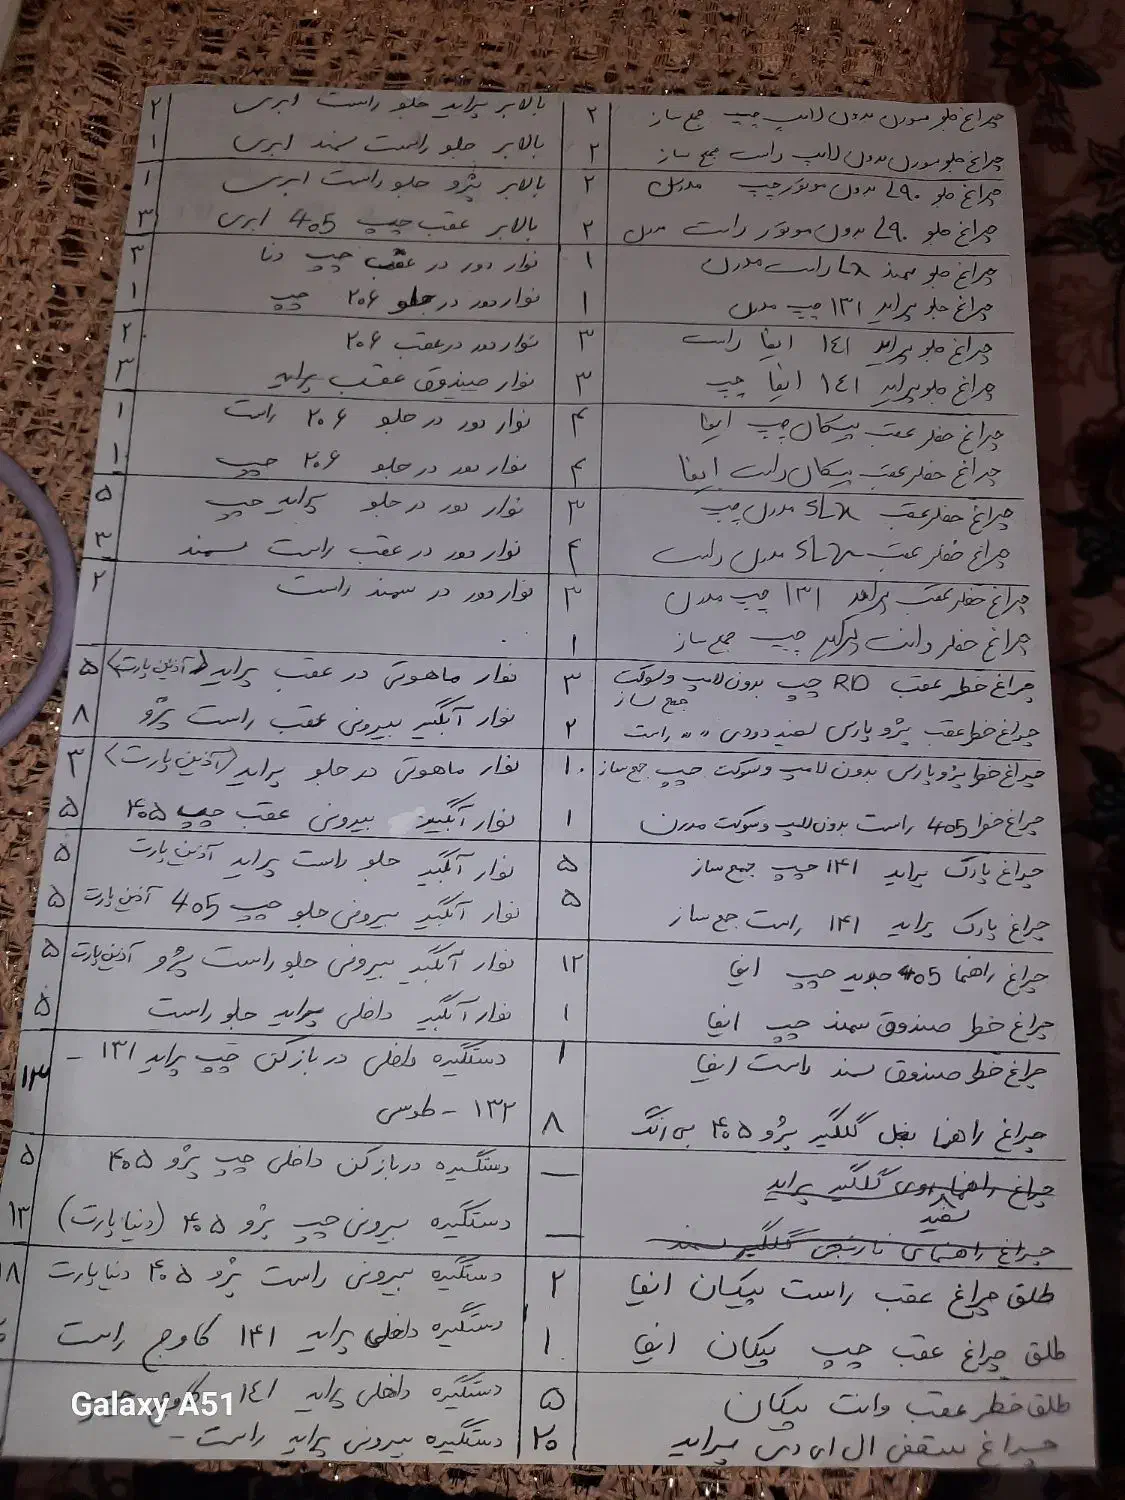 چراغ جلو مدرن بدون لامپ چپ جمع ساز ۲
چراغ جلو مدرن بدون لامپ راست جمع ساز ۲
چراغ جلو L۹۰ بدون موتور چپ مدرن ۲
چراغ جلو L۹۰ بدون موتور راست مدرن ۲
چراغ جلو سمند LX راست مدرن ۱
چراغ جلو پراید ۱۳۱ چپ مدرن ۱
چراغ جلو پراید ۱۴۱ ایفا راست ۳
چراغ جلو پراید ۱۴۱ ایفا چپ ۳
چراغ خطر عقب پیکان چپ ایفا ۴
چراغ خطر عقب پیکان راست ایفا ۴
چراغ خطر عقب SLX مدرن چپ ۳
چراغ خطر عقب SLX مدرن راست ۴
چراغ خطر عقب پراید ۱۳۱ چپ مدرن ۳
چراغ خطر وانت پراید چپ جمع ساز ۱
چراغ خطر عقب RD چپ بدون لامپ و سوکت جمع ساز ۳
چراغ خطر عقب پژو پارس سفید دودی " " راست ۲
چراغ خطر پژو پارس بدون لامپ و سوکت چپ جمع ساز ۱۰
چراغ خطر 405 راست بدون لامپ و سوکت مدرن ۱
چراغ پارک پراید ۱۴۱ چپ جمع ساز ۵
چراغ پارک پراید ۱۴۱ راست جمع ساز ۵
چراغ راهنما 405 جدید چپ ایفا ۱۲
چراغ خطر صندوق سمند چپ ایفا ۱
چراغ خطر صندوق سمند راست ایفا ۱
چراغ راهنما بغل گلگیر پژو ۴۰۵ بی رنگ ۸
چراغ راهنما روی گلگیر پراید —
سفید
چراغ راهنمای نارنجی گلگیر سمند —
طلق چراغ عقب راست پیکان ایفا ۲
طلق چراغ عقب چپ پیکان ایفا ۱
طلق خطر عقب وانت پیکان ۵
چراغ سقفی ال ای دی پراید ۲۰
بالابر پراید جلو راست ابری ۲
بالابر جلو راست سمند ابری ۱
بالابر پژو جلو راست ابری ۱
بالابر عقب چپ 405 ابری ۳
نوار دور در عقب چپ دنا ۳
نوار دور در جلو ۲۰۶ چپ ۱
نوار دور در عقب ۲۰۶ ۲
نوار صندوق عقب پراید ۳
نوار دور در جلو ۲۰۶ راست ۱
نوار دور در جلو ۲۰۶ چپ ۱
نوار دور در جلو پراید چپ ۵
نوار دور در عقب راست سمند ۳
نوار دور در سمند راست ۲
نوار ماهوتی در عقب پراید (آذین پارت) ۵
نوار آبگیر بیرونی عقب راست پژو ۸
نوار ماهوتی در جلو پراید (آذین پارت) ۳
نوار آبگیر بیرونی عقب چپ ۴۰۵ ۵
نوار آبگیر جلو راست پراید آذین پارت ۵
نوار آبگیر بیرونی جلو چپ 405 آذین پارت ۵
نوار آبگیر بیرونی جلو راست پژو آذین پارت ۵
نوار آبگیر داخلی پراید جلو راست ۵
دستگیره داخلی در بازکن چپ پراید ۱۳۱ – ۱۳
۱۳۲ – طوسی
دستگیره دربازکن داخلی چپ پژو ۴۰۵ ۵
دستگیره بیرونی چپ پژو ۴۰۵ (دنیا پارت) ۱۳
دستگیره بیرونی راست پژو ۴۰۵ دنیا پارت ۱۸
دستگیره داخلی پراید ۱۴۱ کاوج راست
دستگیره داخلی پراید ۱۴۱
دستگیره بیرونی پراید راست –
Galaxy A51